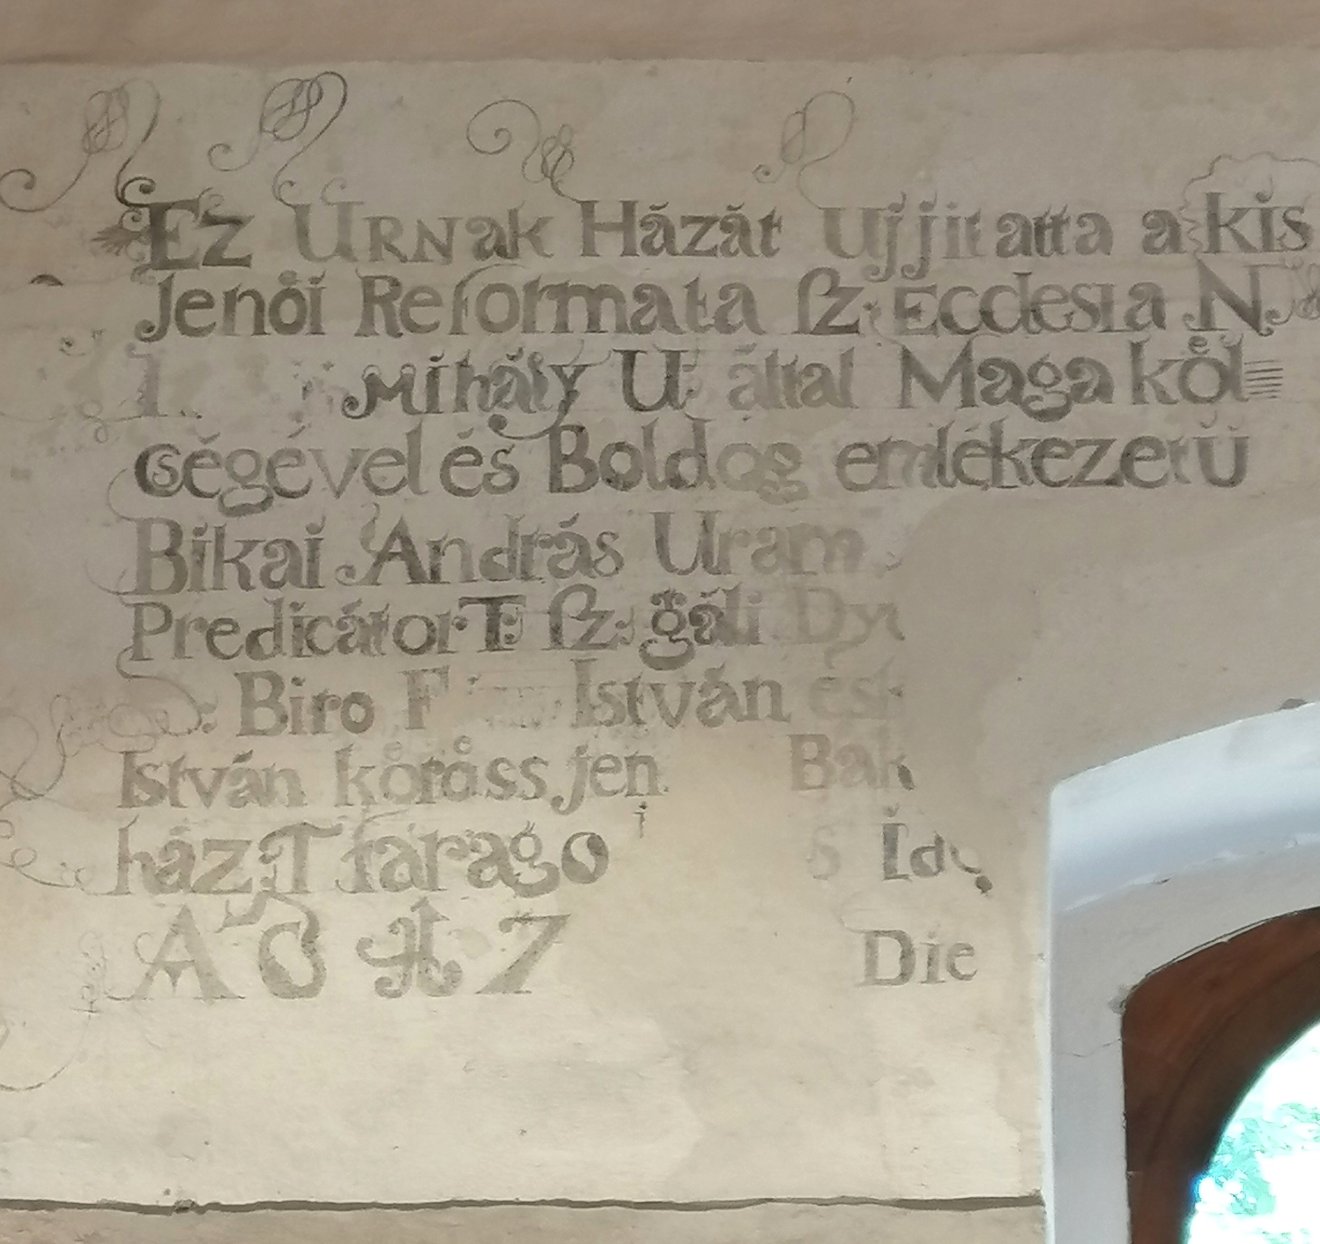 Ez URNak Házát Ujjitatta a kis
Jenői Reformata Sz: Ecclesia N
Mihály U: által Maga költ
ségével és Boldog emlékezetü
Bikai András Uram
PredicátorT: Sz: gáli
Biro F István és
István kőrőss jen Bak
ház:T farago
Die